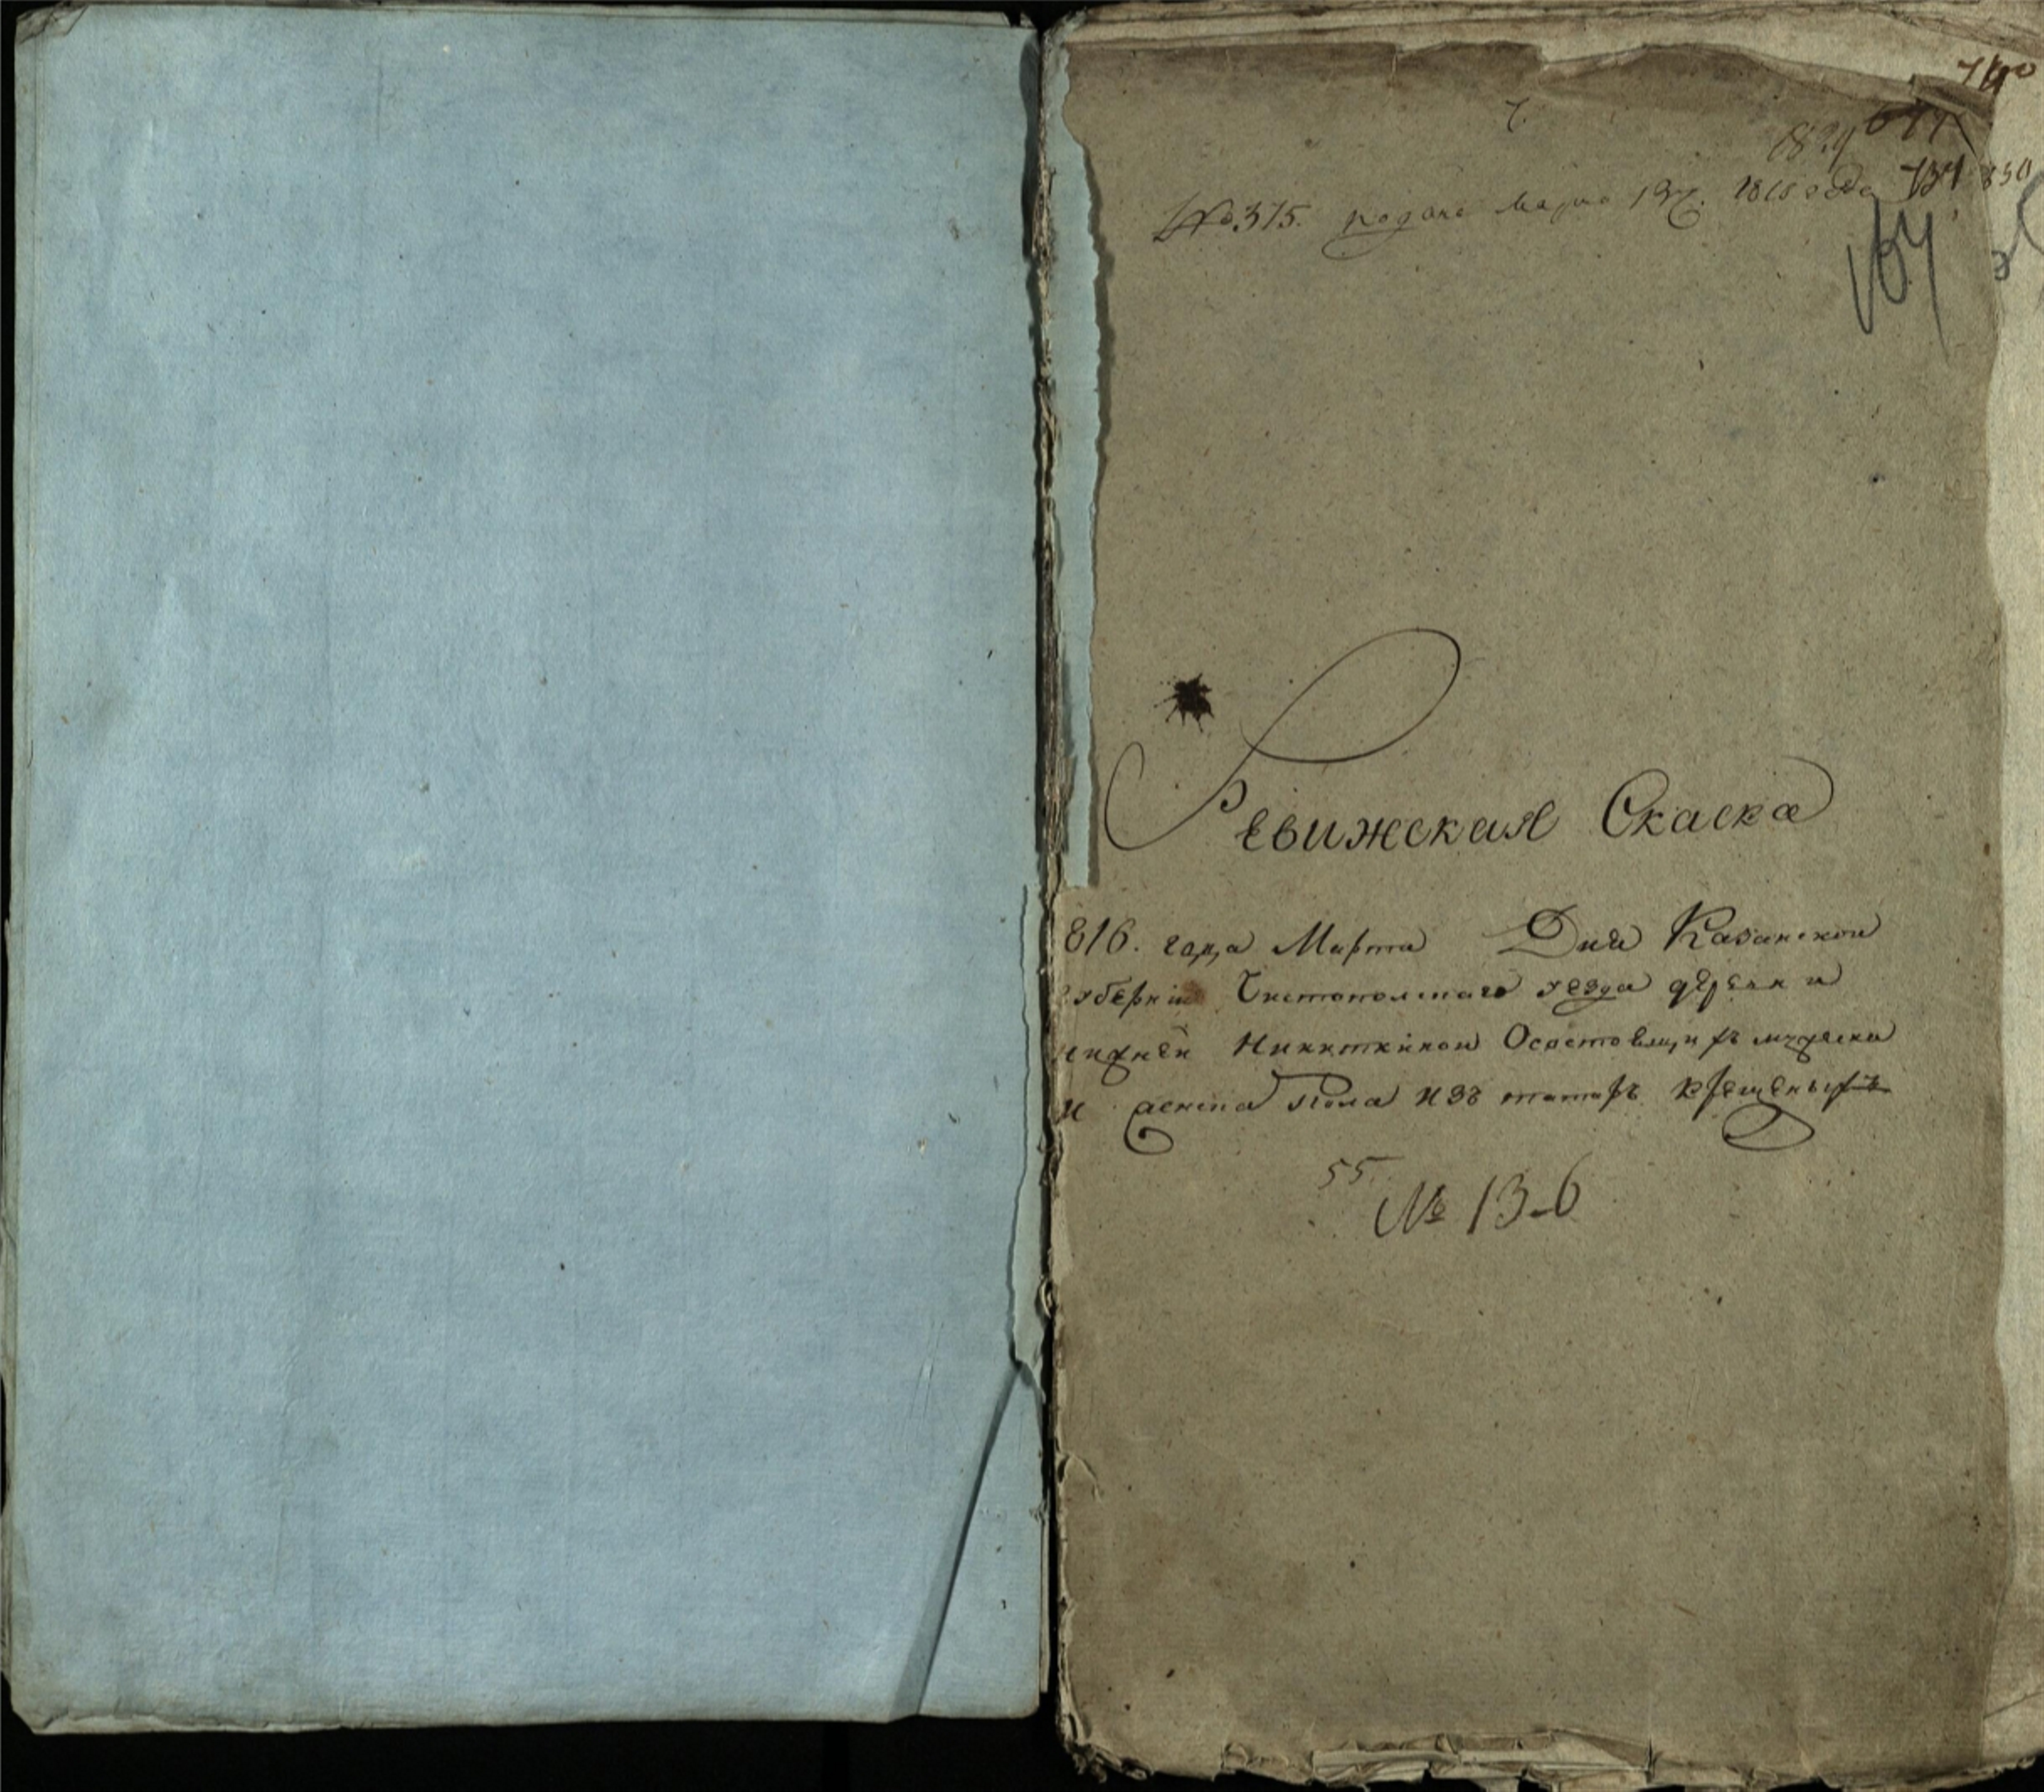 7.
740
677
1829
№ 375. подана марта 13 ч. 1816 года 734 830
164
Ревижская Скаска
816. года Марта Дня Казанской
губернии Чистопольскаго уезда деревни
нижней Никиткиной О состоящихъ мужеска
и женска пола изъ татаръ крещеныхъ
55.
№ 13-6